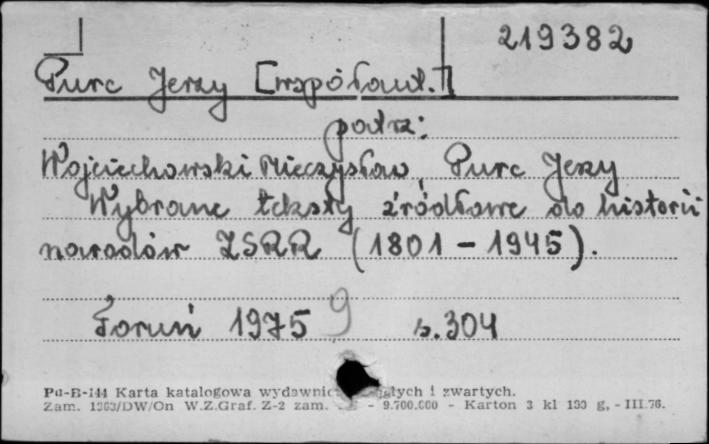 219382
Purc Jerzy [współaut.]
patrz:
Wojciechowski Mieczysław, Purc Jerzy
Wybrane teksty źródłowe do historii
narodów ZSRR (1801 - 1945).
Toruń 1975 9 s. 304
Pu-B-144 Karta katalogowa wydawnic łych i zwartych.
Zam. 1363/DW/On W.Z.Graf. Z-2 zam. - 9.700.000 - Karton 3 kl 190 g, - III.76.